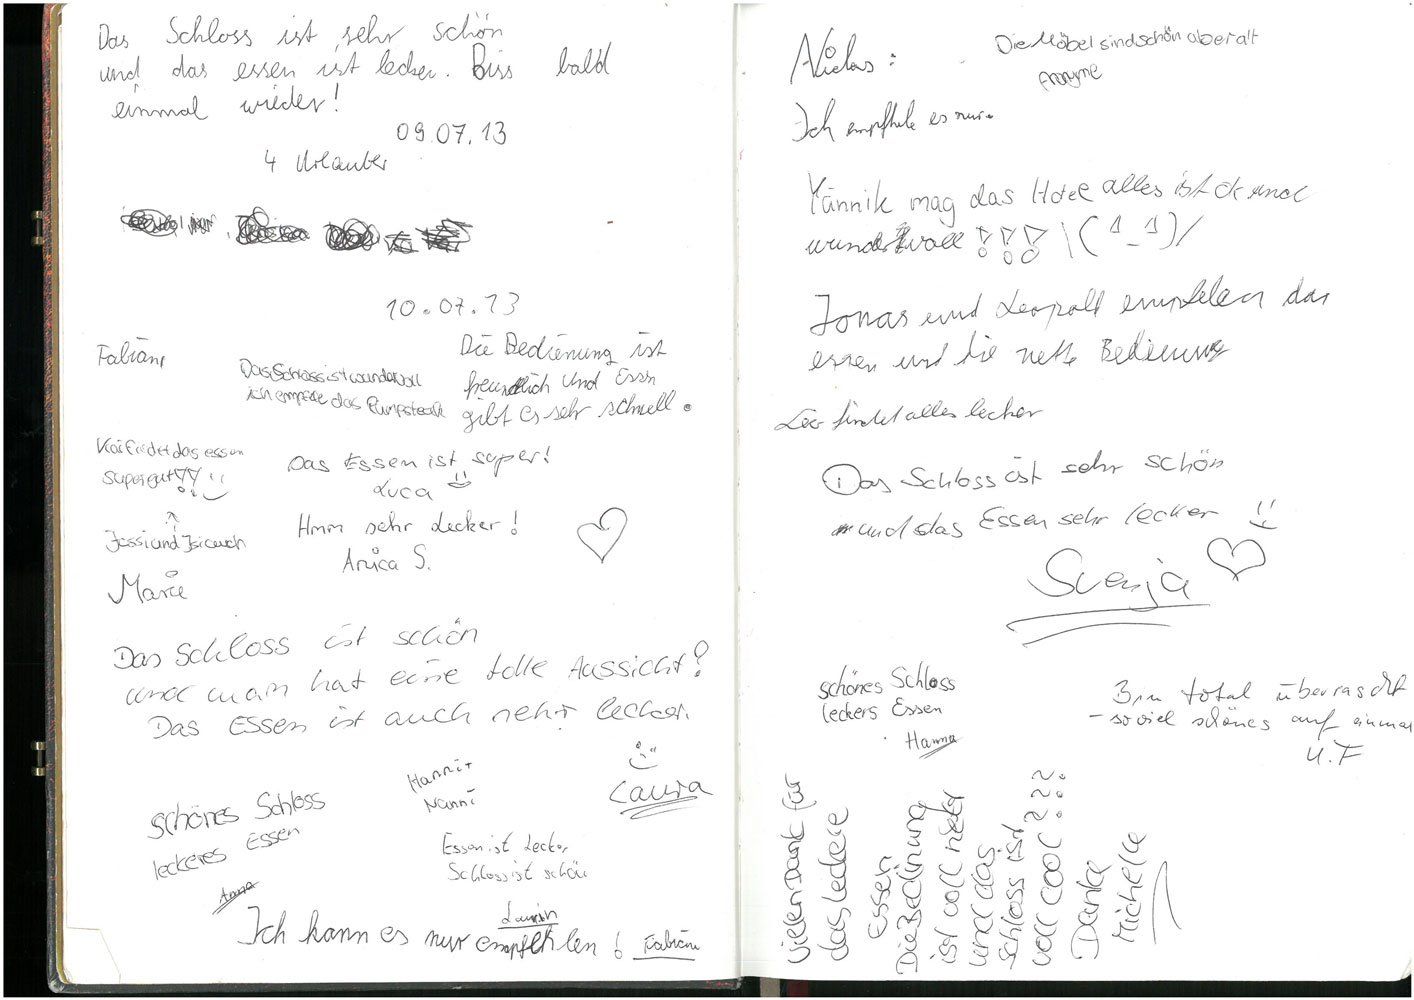 Das Schloss ist sehr schön
und das essen ist lecker. Biss bald
einmal wieder!
09.07.13
4 Urlauber
10.07.13
Fabian,
Das Schloss ist wundervoll
ich empfele das Rumpsteak
Die Bedienung ist
freundlich und Essn
gibt es sehr schnell.
Kai findet das essen
super gut!!
Jessi und Isi auch
Marie
Das Essen ist super!
Luca
Hmm sehr Lecker!
Anica S.
Das Schloss ist schön
und man hat eine tolle Aussicht!
Das Essen ist auch sehr lecker.
Laura
schönes Schloss
leckeres Essen
Anna
Hanni +
Nanni
Essen ist Lecker
Schloss ist schön
Laurin
Ich kann es nur empfehlen! Fabian
Niclas:
Die Möbel sind schön aber alt
Anonyme
Ich empfhele es nur.
Yannik mag das Hotel alles ist ok und
wundervoll !!! \(^_^)/
Jonas und Leopold empfelen das
essen und die nette Bedienung
Leo findet alles lecker
Das Schloss ist sehr schön
und das Essen sehr lecker
Svenja
schönes Schloss
leckers Essen
Hanna
Bin total überrascht
- so viel schönes auf einmal
U.F
Vielen Dank für
das leckere
Essen
Die Bedinung
ist voll nett
und das
Schloss ist
voll cool !!!
Danke
Michelle